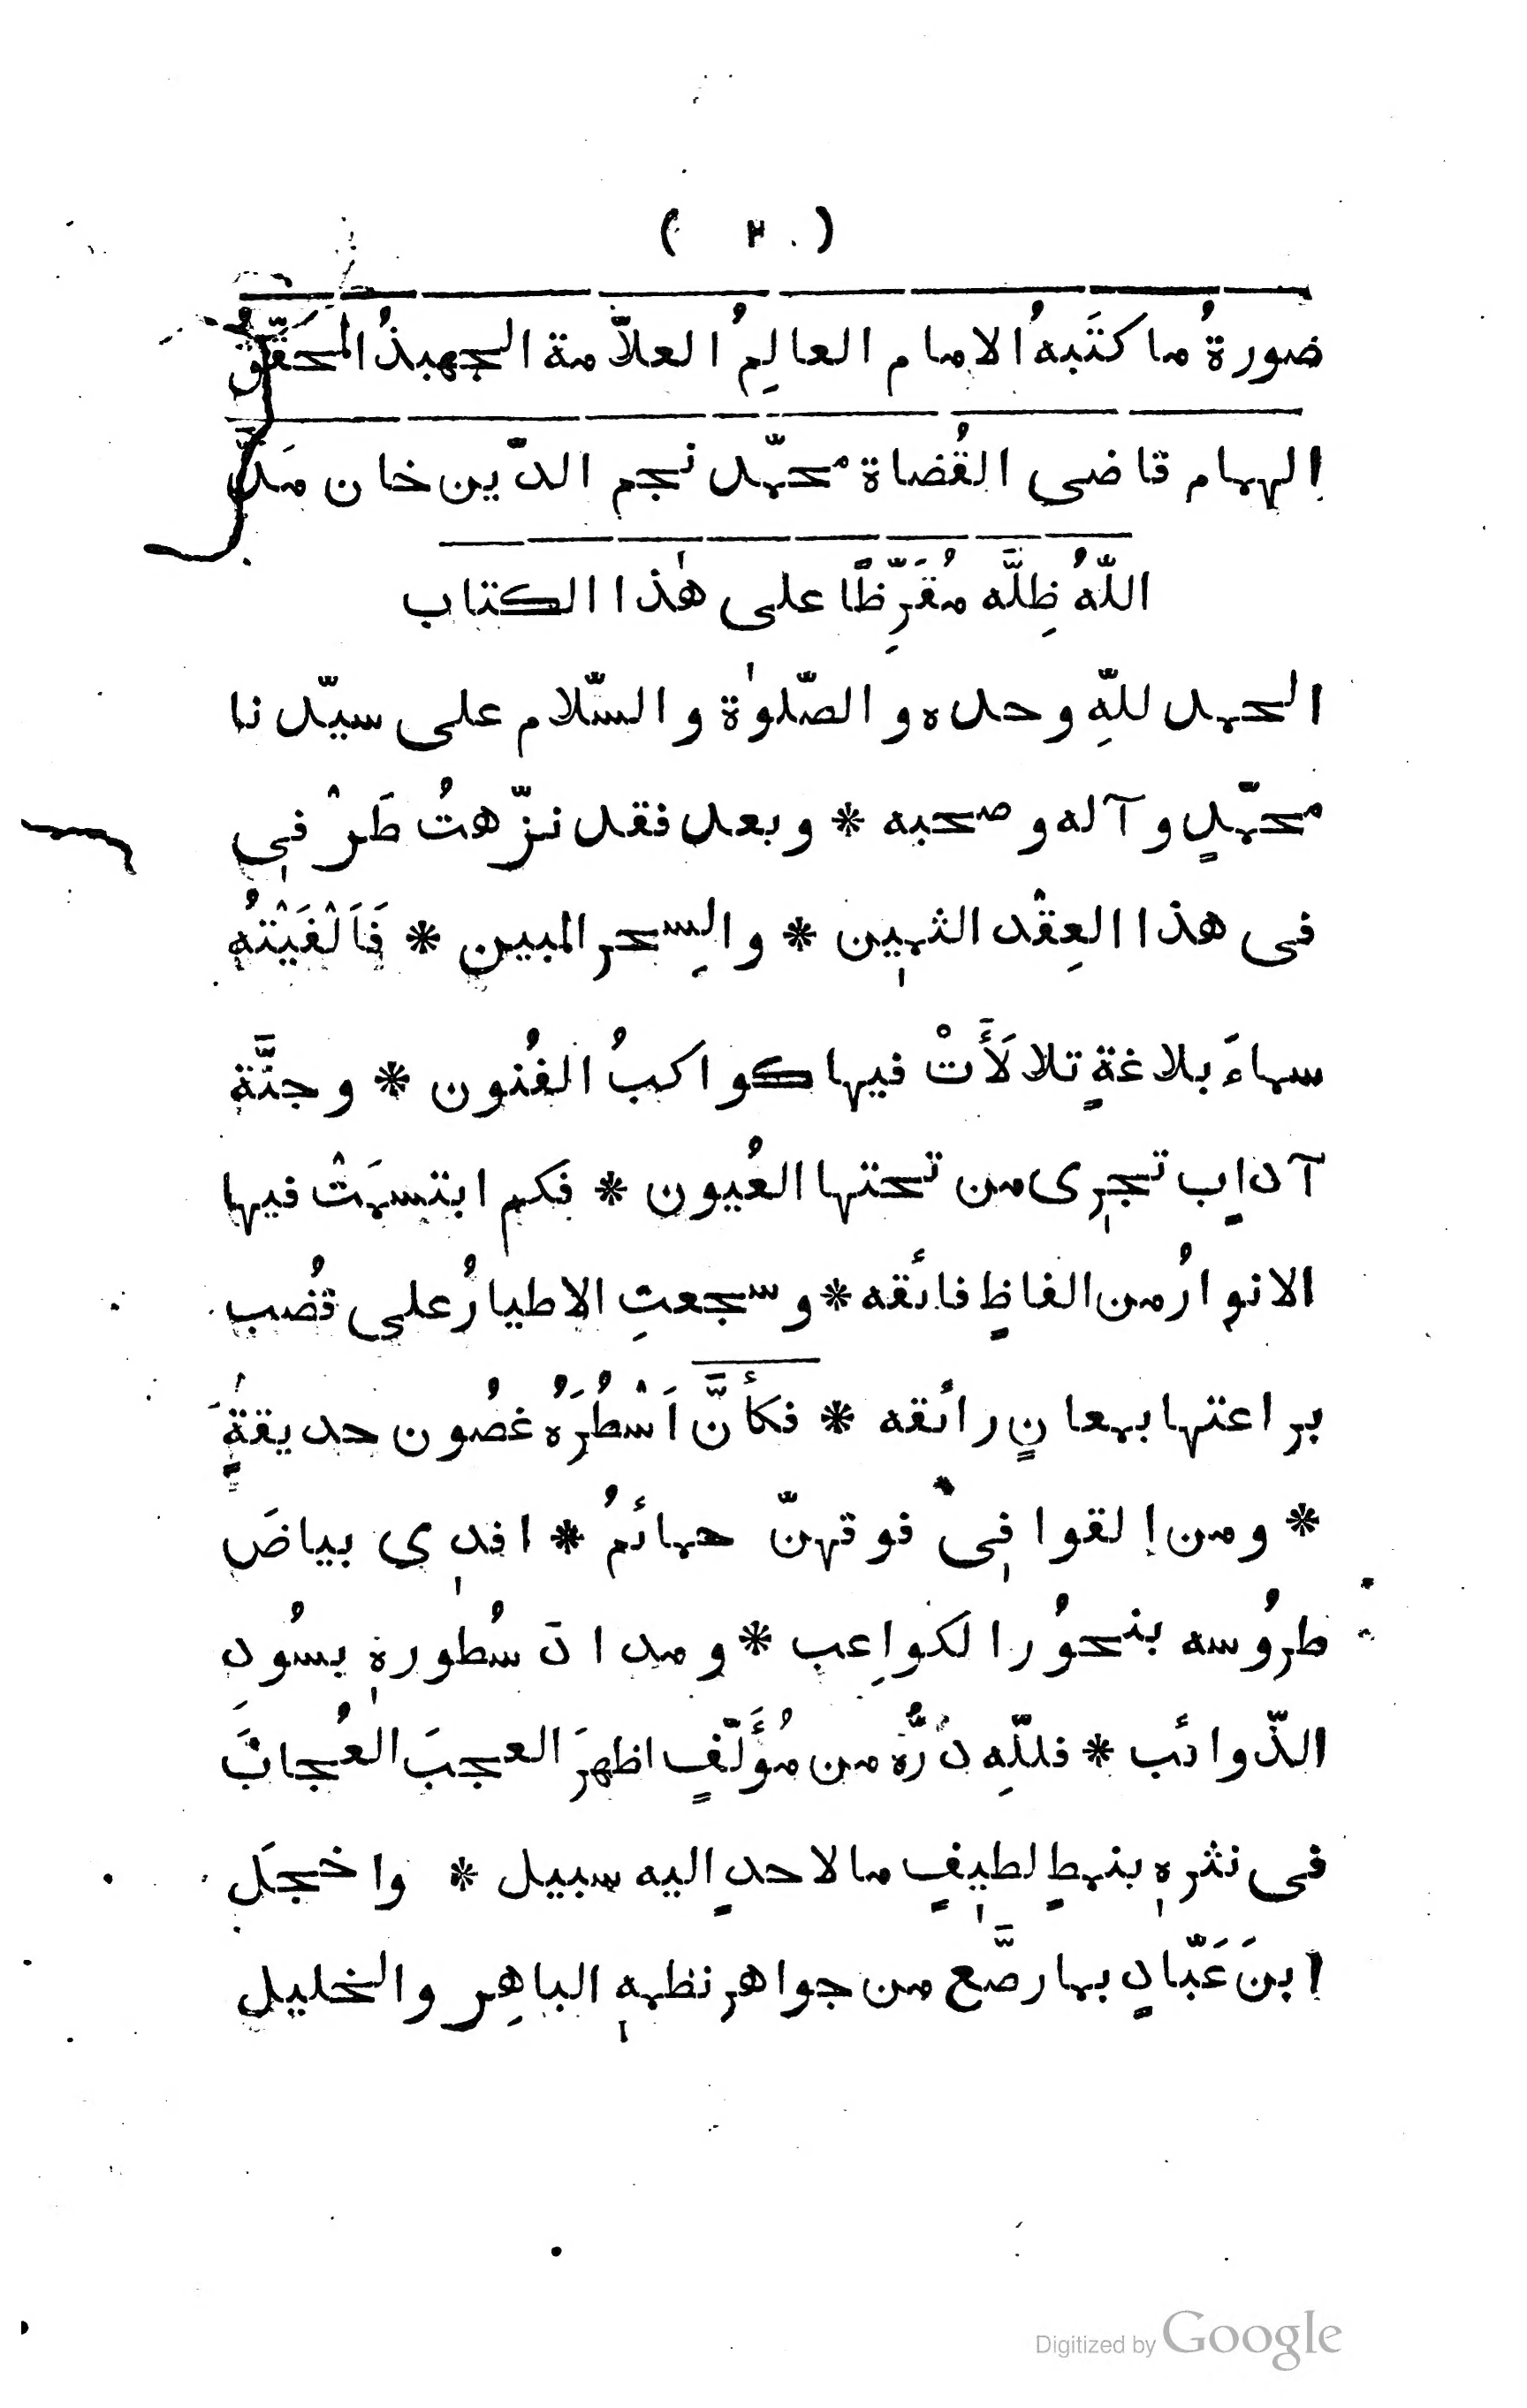 ( ٢٠ )
صورةُ ما كتَبهُ الامام العالِمُ العلاّمة الجهبذُ المحَقّقُ
الهمام قاضى القُضاة محمّد نجم الدّين خان مَدّ
اللّهُ ظِلَّه مُقَرِّظًا على هٰذا الكتاب
الحمد للّهِ وحده و الصّلوٰة و السّلام على سيّدنا
محمّدٍ و آله و صحبه * و بعد فقد نزّهتُ طَرْفى
فى هذا العِقْد الثمين * والسِحر المبين * فَاَلْفَيْتُه
سماءَ بلاغةٍ تلالَأَتْ فيها كواكبُ الفُنون * و جنَّة
آدابٍ تجرى من تحتها العُيون * فكم ابتسمَتْ فيها
الانوارُ من الفاظٍ فائقه * و سجعتِ الاطيارُ على قُضب
براعتها بمعانٍ رائقه * فكأنَّ اَسْطُرَهُ غصُون حديقةٍ
* و من القوافى فوقهنّ حمائمُ * افدى بياضَ
طرُوسه بنحوُر الكواعِب * و مدادَ سُطوره بسُودِ
الذّوائب * فللّهِ دَرُّه من مُؤَلّفٍ اظهرَ العجبَ العُجابَ
فى نثره بنمطٍ لطيفٍ ما لاحدٍ اليه سبيل * واخجَل
ابنَ عَبّادٍ بما رصَّع من جواهر نظمه الباهِر والخليل
Digitized by Google